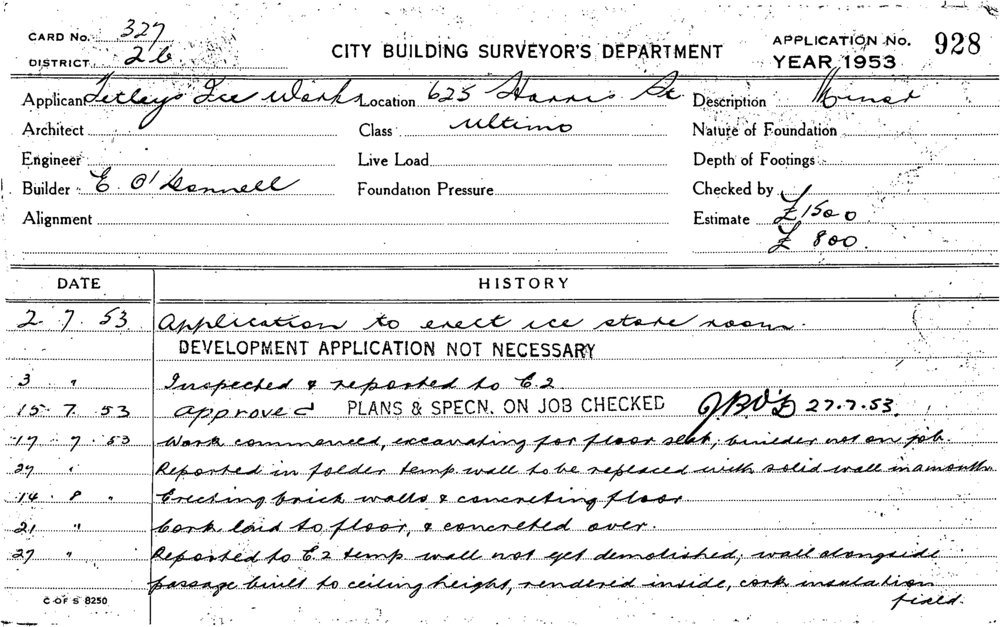 CARD No. 327
DISTRICT 2b
CITY BUILDING SURVEYOR'S DEPARTMENT
APPLICATION No. 928
YEAR 1953
Applicant Tetleys Ice Works Location 625 Harris St Description Minor
Architect Class Ultimo Nature of Foundation
Engineer Live Load Depth of Footings
Builder E. O'Donnell Foundation Pressure Checked by
Alignment Estimate £1500
£ 800.
DATE HISTORY
2. 7. 53 Application to erect ice store room.
DEVELOPMENT APPLICATION NOT NECESSARY
3 " Inspected & reported to E.2.
15. 7. 53 approved PLANS & SPECN. ON JOB CHECKED 27.7.53.
17 7. 53 Work commenced, excavating for floor slab; builder not on job.
27 " Reported in folder temp wall to be replaced with solid wall in a month.
14 8 " Erecting brick walls & concreting floor
21 " Cork laid to floor, & concreted over.
27 " Reported to E2 temp wall not yet demolished; wall alongside
passage built to ceiling height, rendered inside, cork insulation
fixed.
C OF S 8250